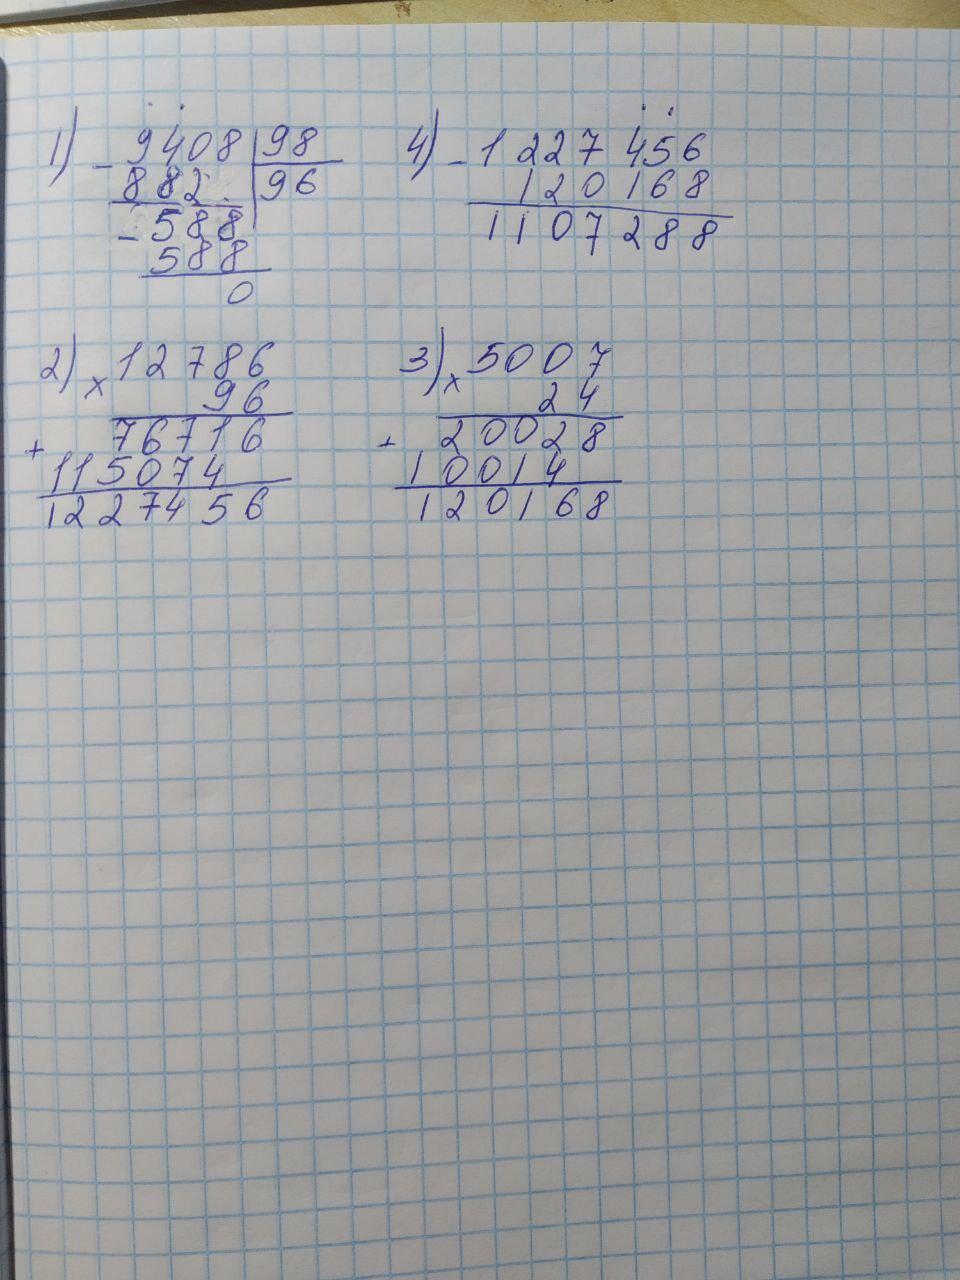 1) - 9408 | 98
882 | 96
- 588
588
0
4) - 1227456
120168
1107288
2) x 12786
96
+ 76716
115074
1227456
3) x 5007
24
+ 20028
10014
120168